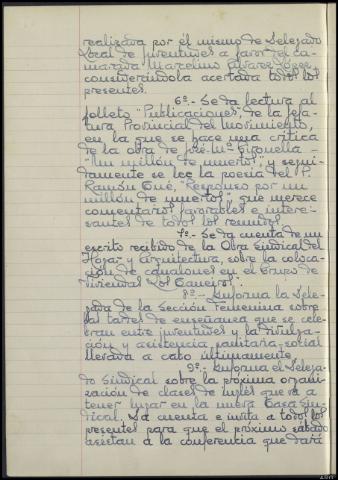 realizada por él mismo de Delegado
Local de juventudes a favor del ca-
marada Marcelino Alvarez López,
considerándola acertada todos los
presentes.
6º.- Se da lectura al
folleto "Publicaciones", de la Jefa-
tura Provincial del Movimiento,
en la que se hace una crítica
de la obra de José Mª Gironella -
"Un millón de muertos", y segui-
damente se lee la poesía del P.
Ramón Cué, "Responso por un
millón de muertos", que merece
comentarios favorables e intere-
santes de todos los reunidos.
7º.- Se da cuenta de un
escrito recibido de la Obra Sindical del
Hogar y Arquitectura, sobre la coloca-
ción de canalones en el Grupo de
Viviendas "Los Caneiros".
8º.- Informa la Dele-
gada de la Sección Femenina sobre
las tardes de enseñanza que se cele-
bran entre juventudes y la divulga-
ción y asistencia sanitario-social
llevada a cabo últimamente.
9º.- Informa el Delega-
do Sindical sobre la próxima organi-
zación de clases de inglés que va a
tener lugar en la nueva Casa Sin-
dical. Da cuenta e invita a todos los
presentes para que el próximo sábado
asistan a la conferencia que dará